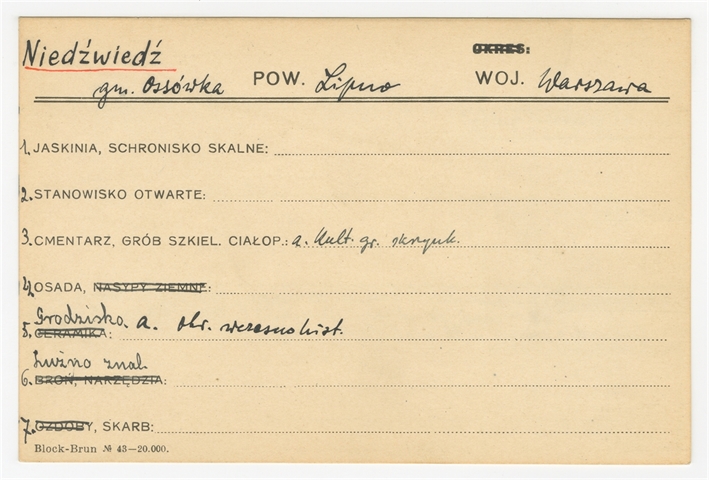 Niedźwiedź OKRES:
gm. Ossówka POW. Lipno WOJ. Warszawa
1. JASKINIA, SCHRONISKO SKALNE:
2. STANOWISKO OTWARTE:
3. CMENTARZ, GRÓB SZKIEL. CIAŁOP.: a. Kult. gr. skrzynk.
4. OSADA, NASYPY ZIEMNE:
Grodzisko. a. okr. wczesnohist.
5. CERAMIKA:
Luźno znal.
6. BROŃ, NARZĘDZIA:
7. OZDOBY, SKARB:
Block-Brun № 43—20.000.